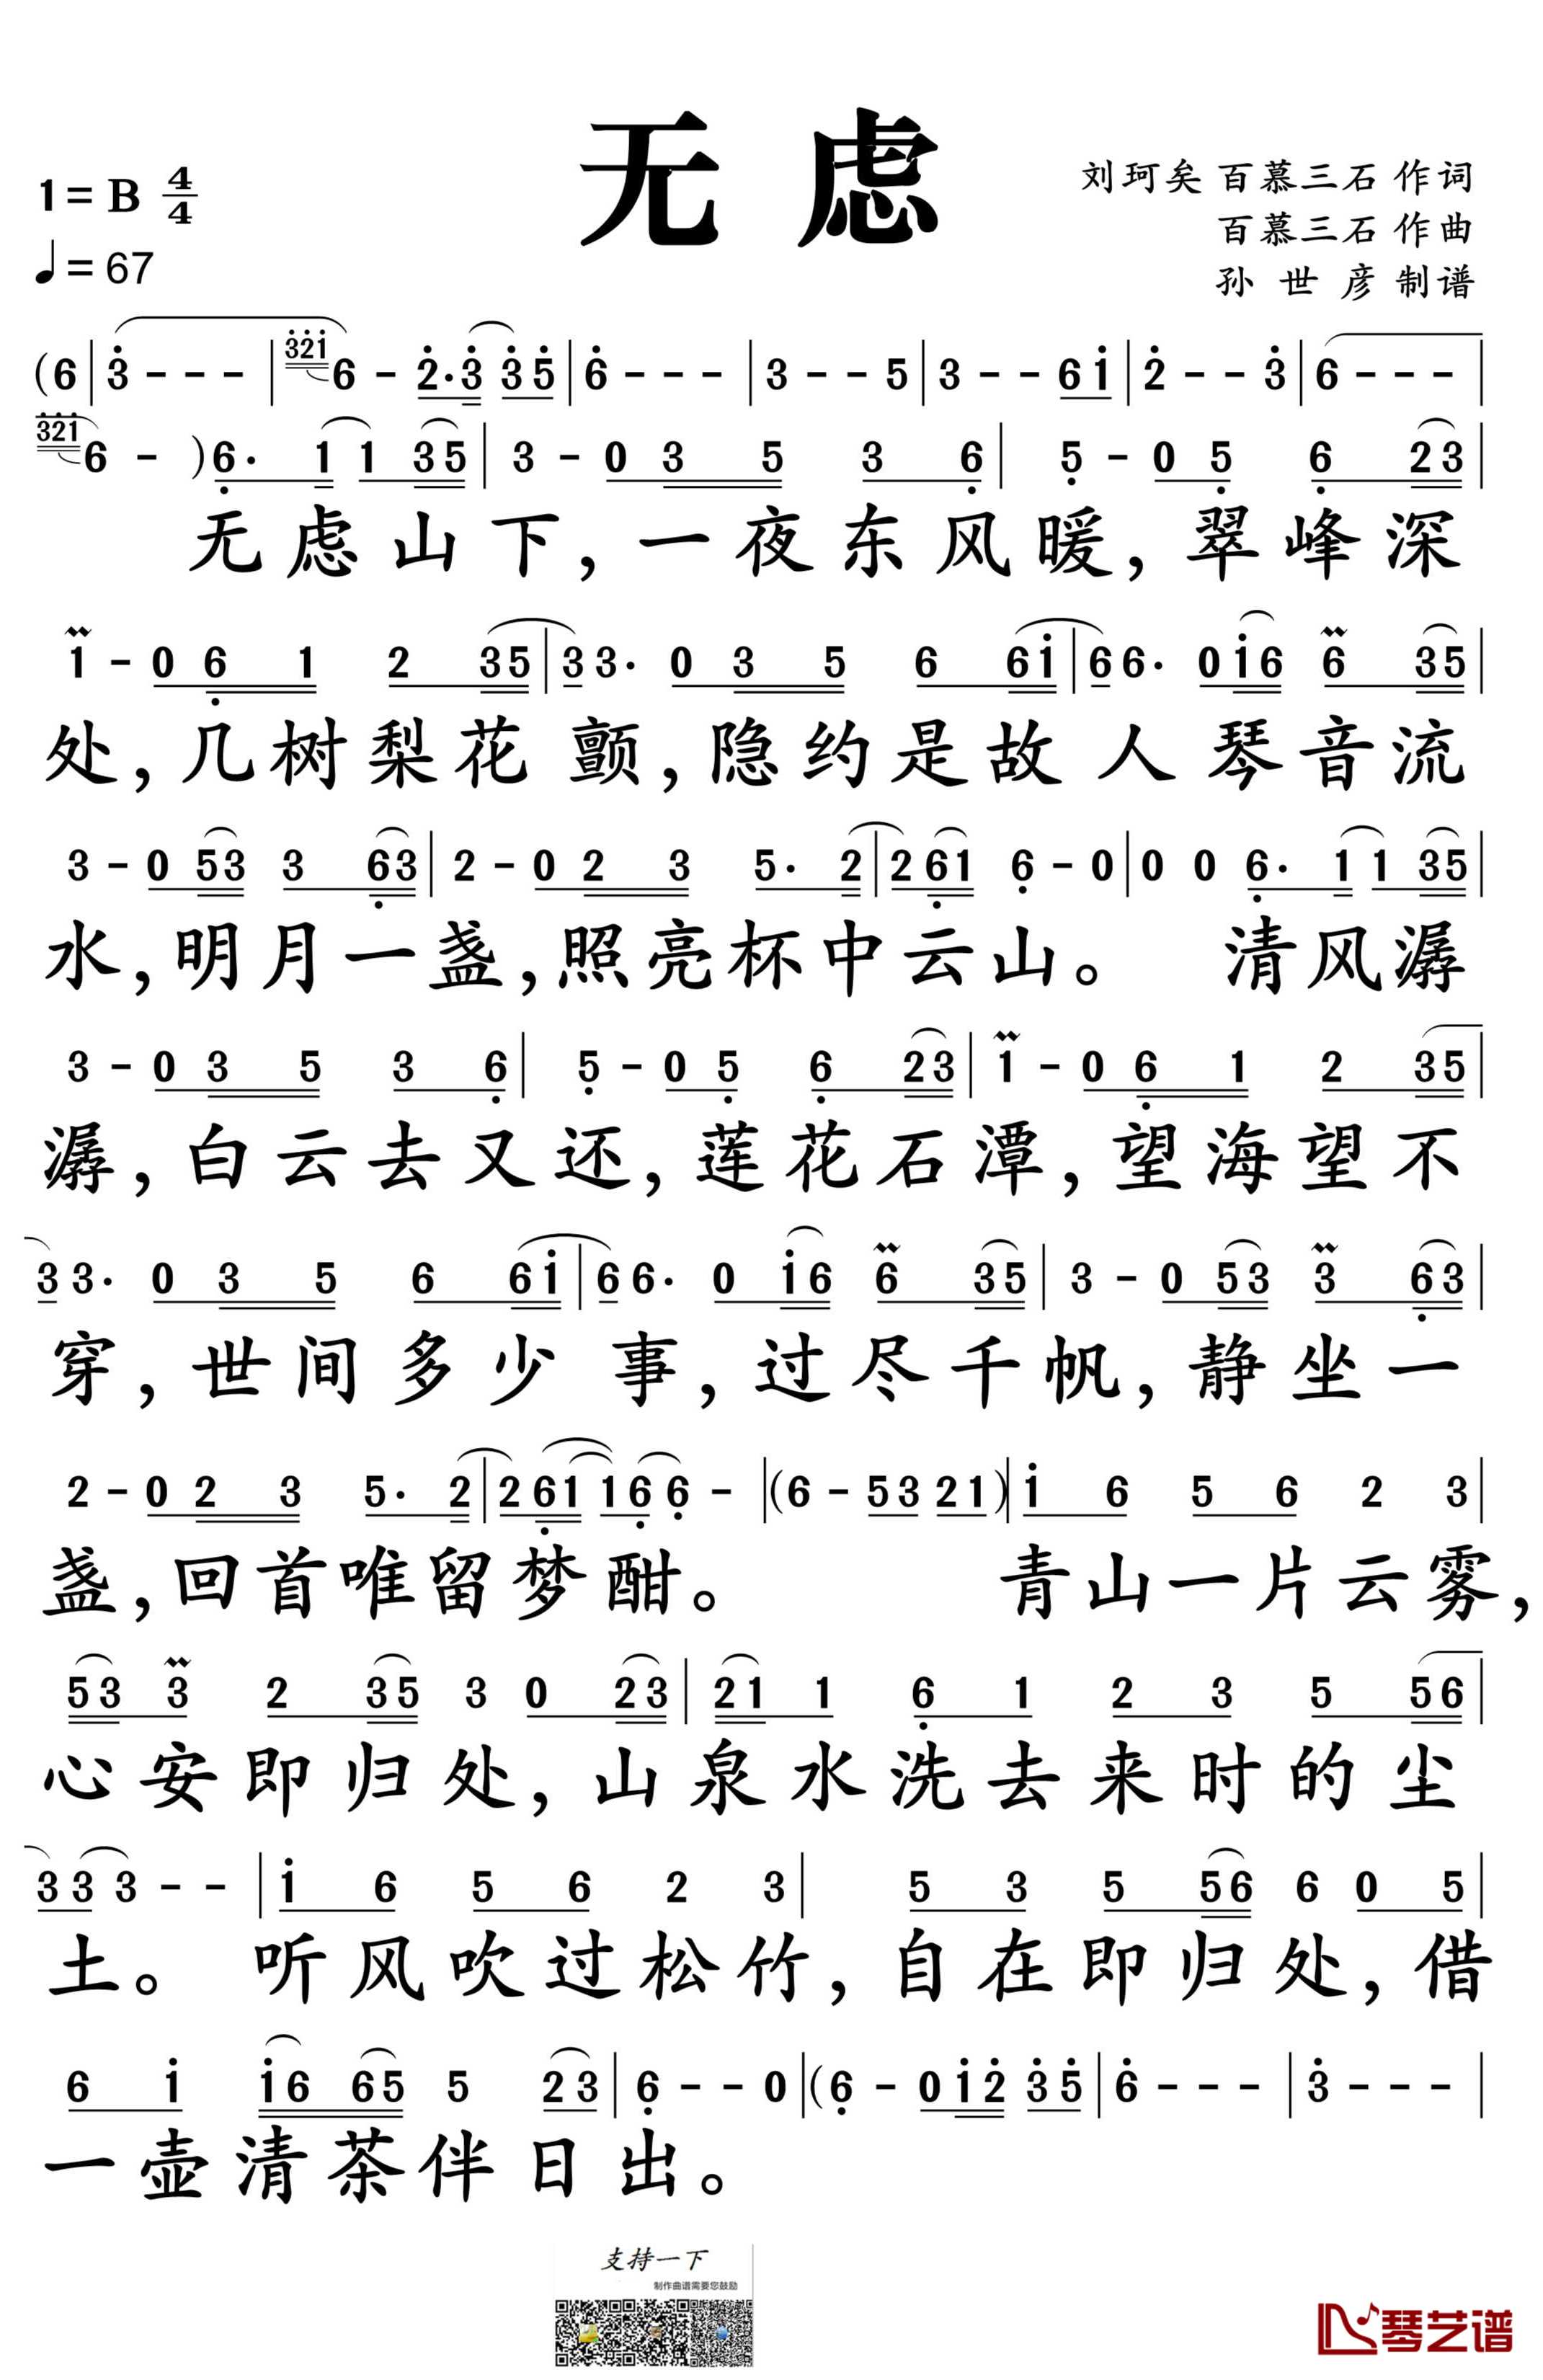 无虑
1=B 4/4
♩=67
刘珂矣 百慕三石 作词
百慕三石 作曲
孙世彦 制谱
(6|3̇ - - - |3̇2̇1̇ 6 - 2̇·3̇ 3̇5̇|6̇ - - - |3 - - 5|3 - - 6 1̇|2̇ - - 3̇|6 - - - |
3̇2̇1̇ 6 - )6̣· 1 1 35| 3 - 0 3 5 3 6̣| 5̣ - 0 5̣ 6̣ 23|
无虑山下,一夜东风暖,翠峰深
1 - 0 6̣ 1 2 35|3 3· 0 3 5 6 61̇|6 6· 0 1̇6 6 35|
处,几树梨花颤,隐约是故人琴音流
3 - 0 53 3 6̣3|2 - 0 2 3 5· 2|2 6̣1 6̣ - 0|0 0 6̣· 1 1 35|
水,明月一盏,照亮杯中云山。 清风潺
3 - 0 3 5 3 6̣| 5̣ - 0 5̣ 6̣ 23|1 - 0 6̣ 1 2 35|
潺,白云去又还,莲花石潭,望海望不
3 3· 0 3 5 6 61̇|6 6· 0 1̇6 6 35|3 - 0 53 3 6̣3|
穿,世间多少事,过尽千帆,静坐一
2 - 0 2 3 5· 2|2 6̣1 16̣ 6̣ - |(6 - 53 21)|1̇ 6 5 6 2 3|
盏,回首唯留梦酣。 青山一片云雾,
53 3 2 35 3 0 23|21 1 6̣ 1 2 3 5 56|
心安即归处,山泉水洗去来时的尘
3 3 3 - - |1̇ 6 5 6 2 3| 5 3 5 56 6 0 5|
土。 听风吹过松竹,自在即归处,借
6 1̇ 1̇6 65 5 23|6̣ - - 0|(6̣ - 0 1̇2̇ 3̇5̇|6̇ - - - |3̇ - - - |
一壶清茶伴日出。
支持一下
制作曲谱需要您鼓励
琴艺谱